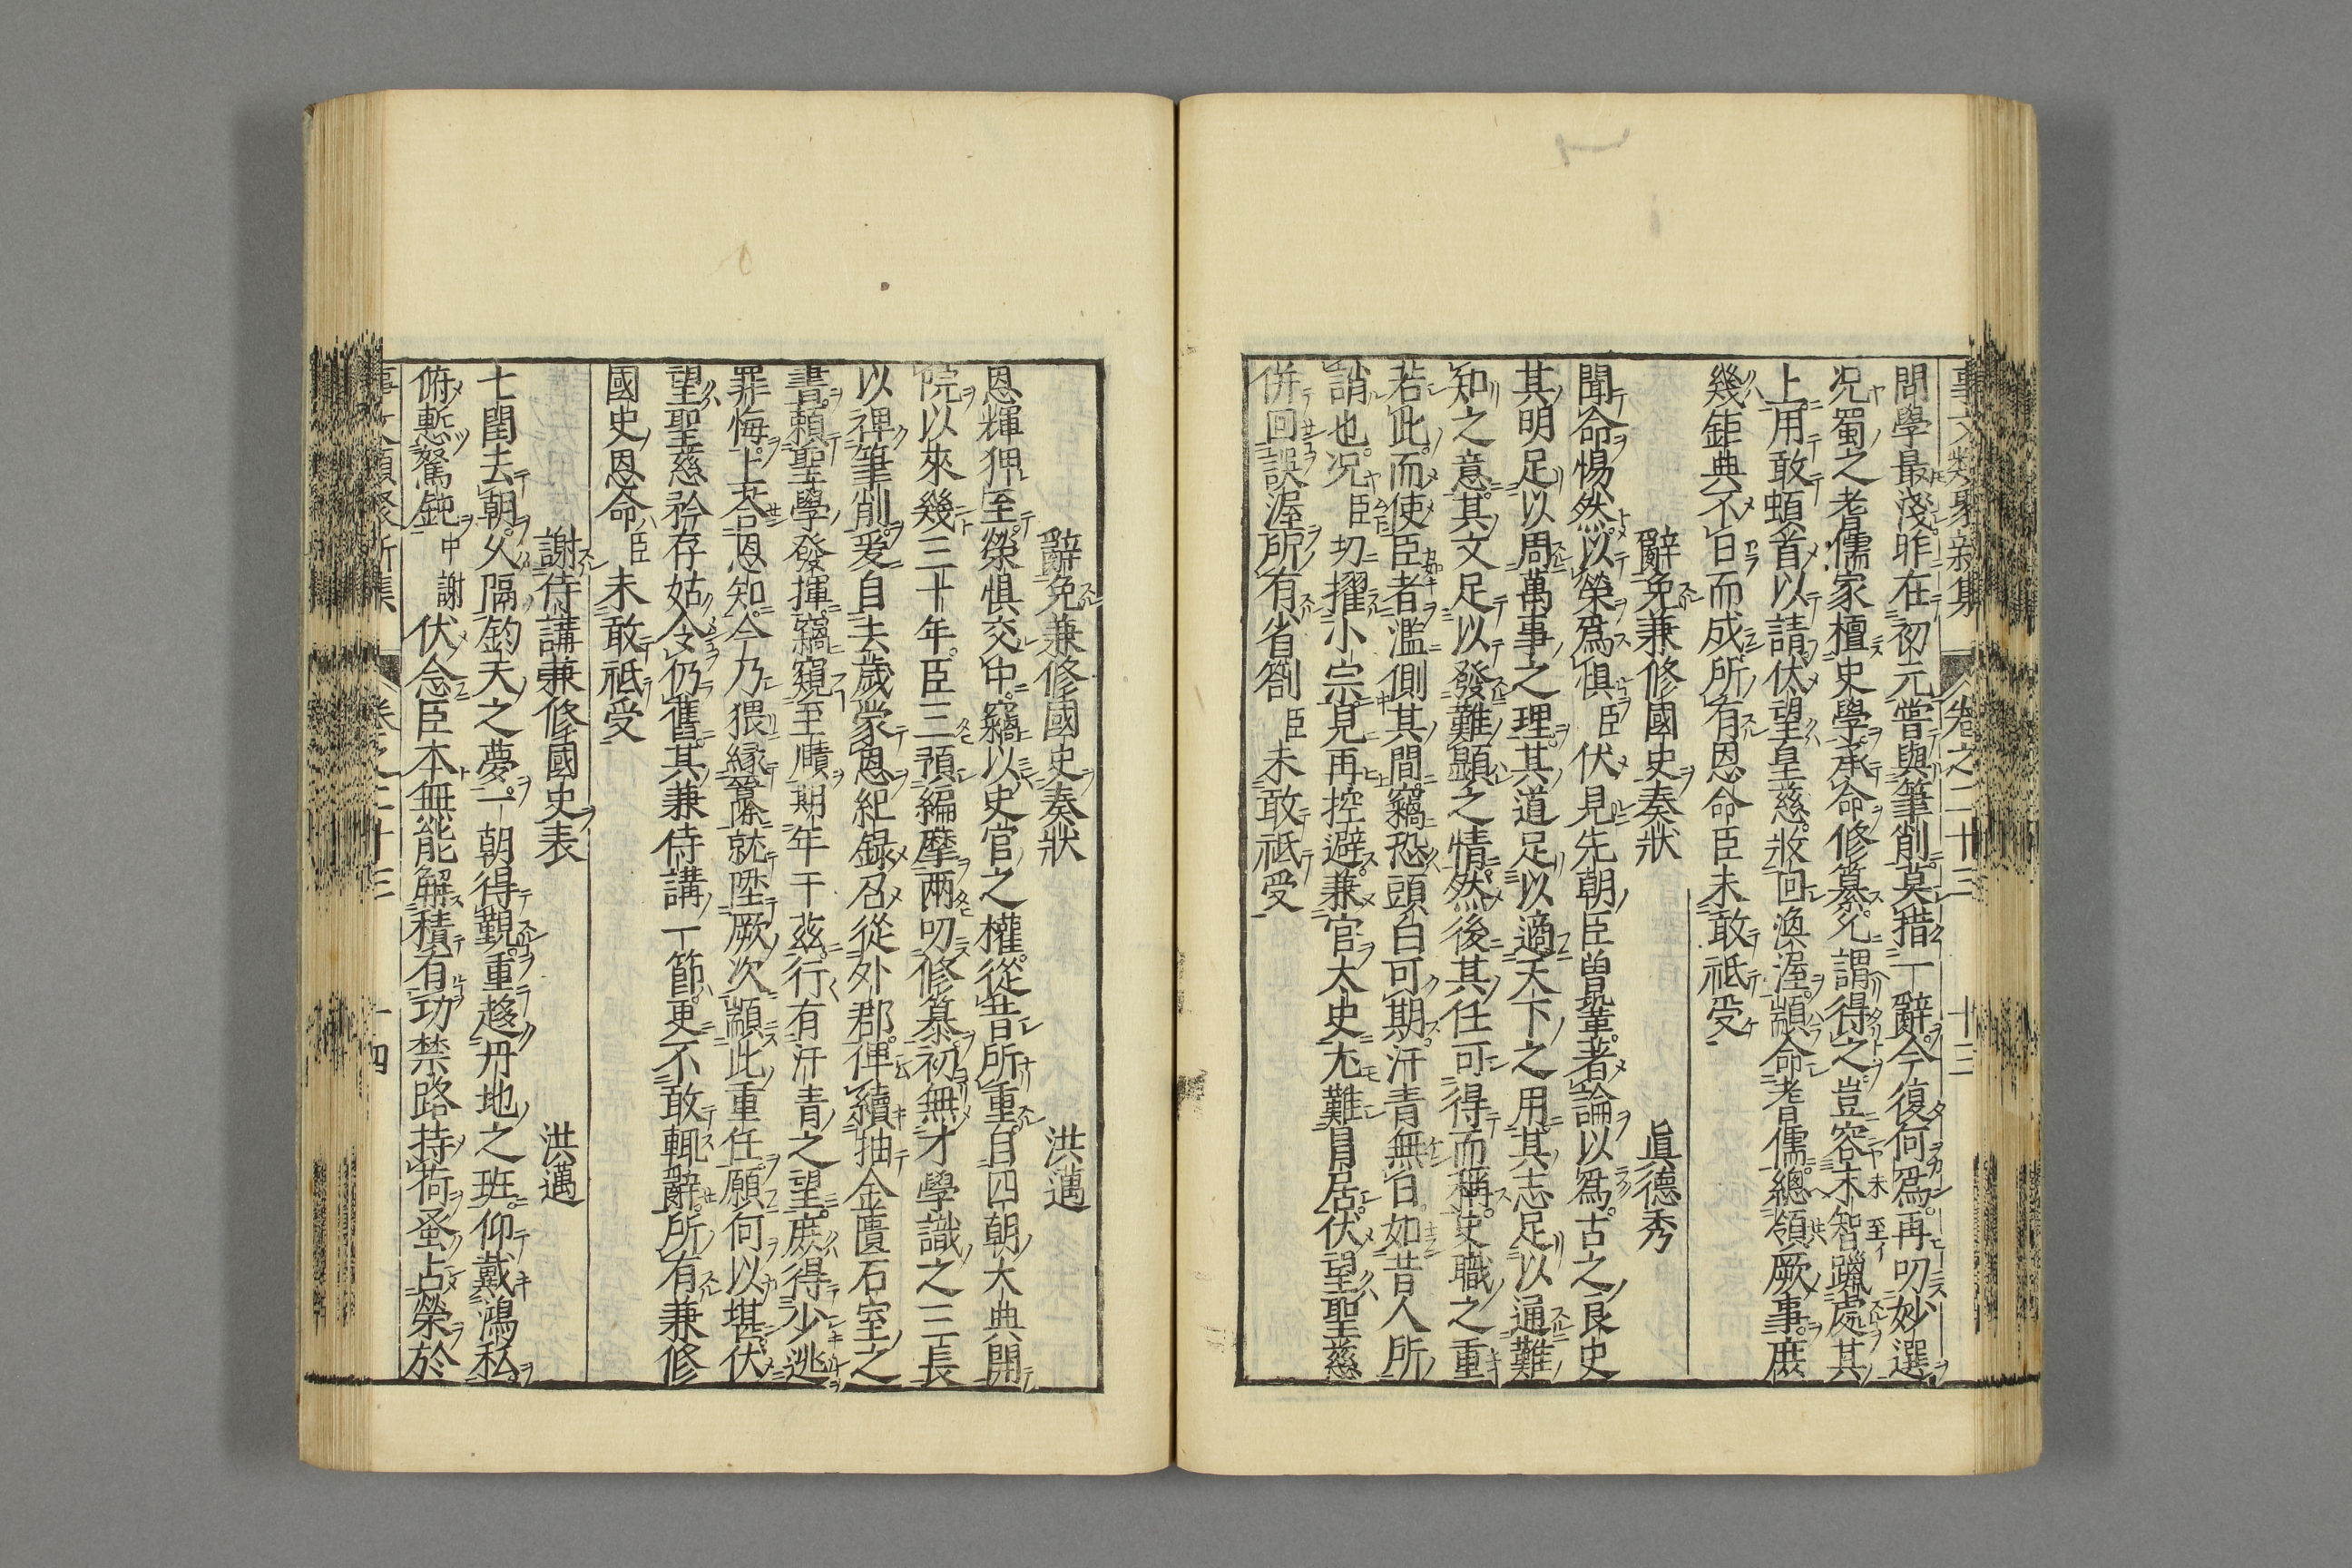 事文類聚新集 卷之二十三 十三
問學最淺昨在初元嘗與筆削莫措一辭今復何爲再叨妙選
况蜀之老儒家檀史學承命修纂允謂得之豈容末智躐處其
上用敢頓首以請伏望皇慈收回渙渥顓命老儒總領厥事庶
幾鉅典不日而成所有恩命臣未敢祗受
辭免兼修國史奏狀 眞德秀
聞命惕然以榮爲懼臣伏見先朝臣曾鞏著論以爲古之良史
其明足以周萬事之理其道足以適天下之用其志足以通難
知之意其文足以發難顯之情然後其任可得而稱史職之重
若此而使臣者濫側其間竊恐頭白可期汗青無日如昔人所
誚也况臣切擢小宗見再控避兼官太史尤難冒居伏望聖慈
併回誤渥所有省劄臣未敢祗受
辭免兼修國史奏狀 洪邁
恩輝狎至榮懼交中竊以史官之權從昔所重自四朝大典開
院以來幾三十年臣三預編摩兩叨修纂初無才學識之三長
以裨筆削爰自去歲蒙恩紀錄召從外郡俾續抽金匱石室之
書賴聖學發揮竊窺至賾期年于茲行有汗青之望庶得少逃
罪悔上荅恩知今乃猥緣㬥就陞厥次顓此重任願何以堪伏
望聖慈矜存姑令仍舊其兼侍講一節更不敢輒辭所有兼修
國史恩命臣未敢祗受
謝侍講兼修國史表 洪邁
七閏去朝久隔鈞天之夢一朝得覲重趍丹地之班仰戴鴻私
俯慙駑鈍中謝伏念臣本無能解積有功禁路持荷蚤占榮於
事文類聚新集 卷之二十三 十四